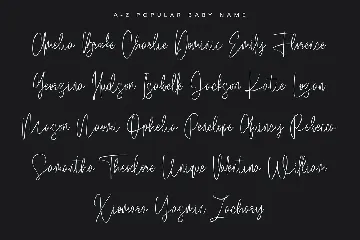 A-Z POPULAR BABY NAME
Amelia Brake Charlie Dominic Emily Florence
Georgina Hudson Isabelle Jackson Katie Logan
Mason Naomi Ophelia Penelope Quincy Rebecca
Samantha Theodore Unique Valentino William
Xiomara Yasmin Zachary